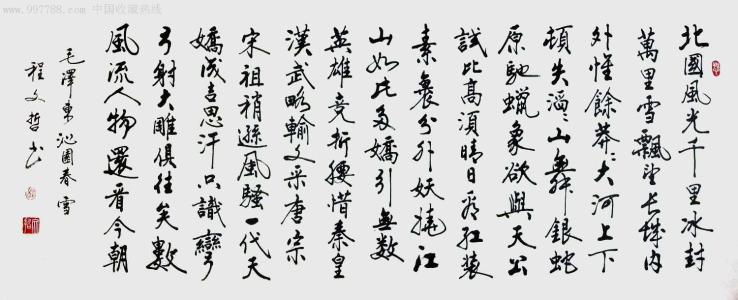 www.997788.com 中国收藏热线
北國風光千里冰封
萬里雪飄望长城内
外惟餘莽々大河上下
頓失滔々山舞銀蛇
原馳蠟象欲與天公
試比高須晴日看红装
素裹分外妖娆江
山如此多嬌引無数
英雄竞折腰惜秦皇
漢武略輸文采唐宗
宋祖稍遜風騷一代天
嬌成吉思汗只識彎
弓射大雕俱往矣數
風流人物還看今朝
毛澤東沁園春雪
程文哲书